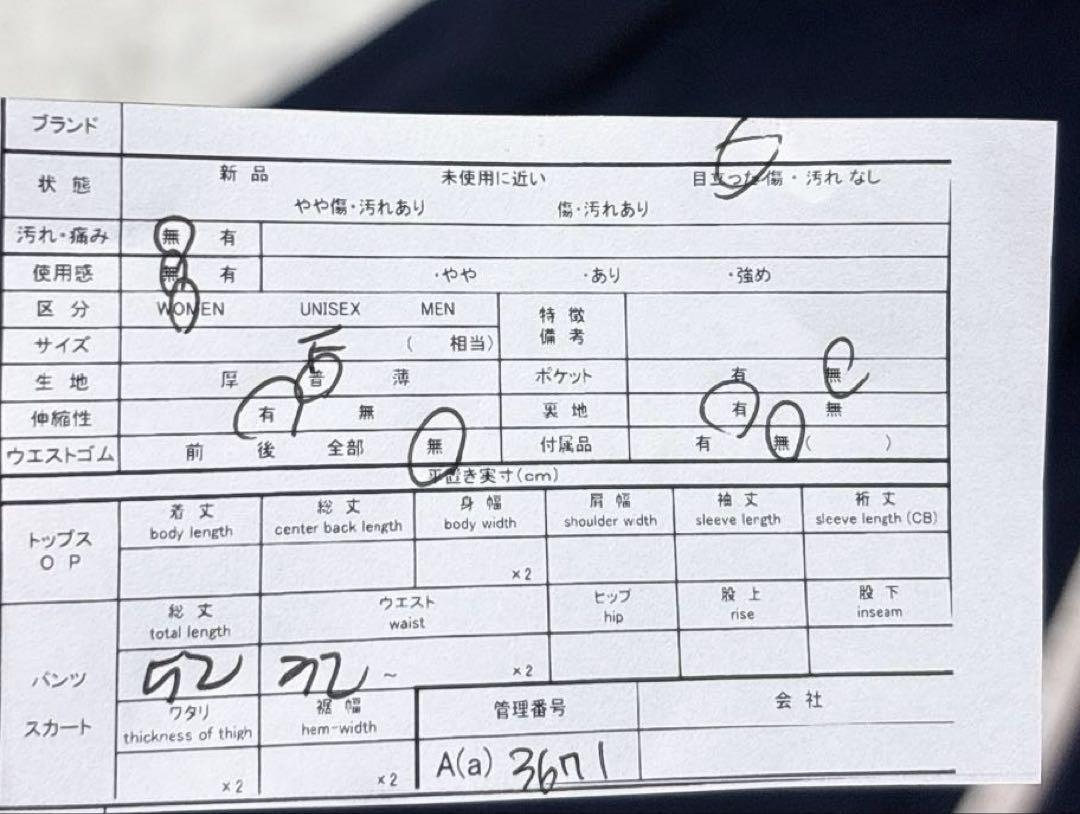 ブランド
状態 新品 未使用に近い 目立った傷・汚れなし
やや傷・汚れあり 傷・汚れあり
汚れ・痛み 無 有
使用感 無 有 ・やや ・あり ・強め
区分 WOMEN UNISEX MEN 特徴備考
サイズ ( 相当)
生地 厚 普 薄 ポケット 有 無
伸縮性 有 無 裏地 有 無
ウエストゴム 前 後 全部 無 付属品 有 無( )
平置き実寸(cm)
着丈 総丈 身幅 肩幅 袖丈 裄丈
body length center back length body width shoulder wdth sleeve length sleeve length (CB)
トップス
O P ×2
総丈 ウエスト ヒップ 股上 股下
total length waist hip rise inseam
パンツ 52 32 ~ ×2
スカート ワタリ 裾幅 管理番号 会社
thickness of thigh hem-width
×2 ×2 A(a) 3671